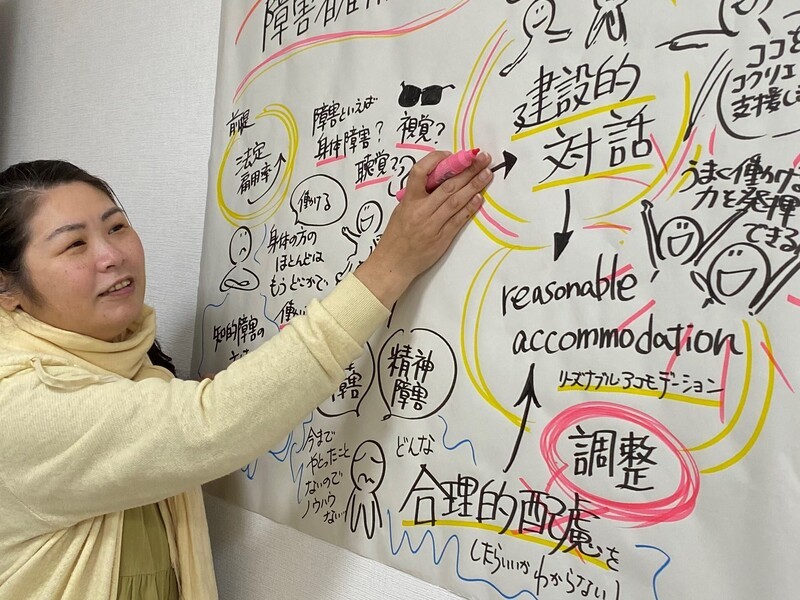 障害者雇用
前提
法定
雇用率↑
障害といえば
身体障害?
視覚?
聴覚?
働ける
身体の方の
ほとんどは
もうどこかで
知的障害の
精神
障害
今まで
やったこと
ないので
ノウハウ
ない…
建設的
対話
reasonable
accommodation
リーズナブルアコモデーション
調整
どんな
合理的配慮を
したらいいかわからない!
ココを
支援し
うまく働ける
力を発揮
できる